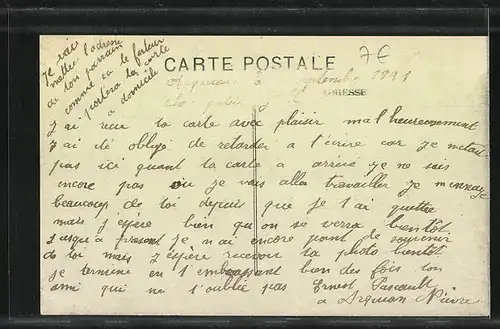 je vais
mettre l'adresse
de ton parrain
comme ça le facteur
portera la carte
a domicile
CARTE POSTALE
7€
1921
j'ai reçu ta carte avec plaisir malheureusement
j'ai été obligé de retarder a t'écrire car je n'étais
pas ici quant ta carte a arrivé je ne sais
encore pas ou je vais aller travailler je m'ennuye
beaucoup de toi depuis que je t'ai quittée
mais j'éspère bien qu'on se verra bientôt
jusqu'a present je n'ai encore point de souvenir
de toi mais j'espère recevoir ta photo bientôt
je termine en t'embrassant bien des fois ton
ami qui ne t'oublie pas Ernest Pascault
a Arquian Nièvre